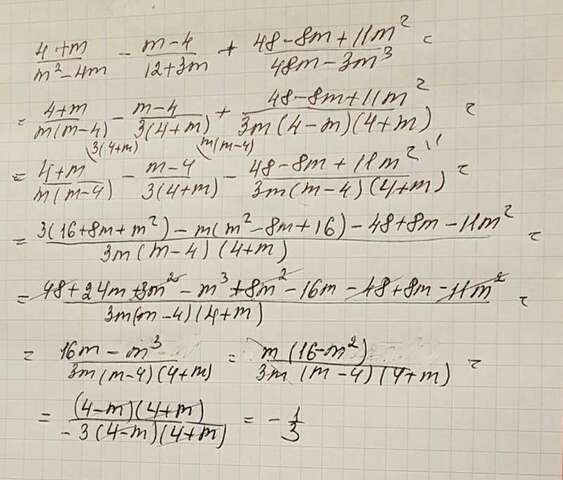 (4+m)/(m²-4m) - (m-4)/(12+3m) + (48-8m+11m²)/(48m-3m³) =
= (4+m)/(m(m-4)) - (m-4)/(3(4+m)) + (48-8m+11m²)/(3m(4-m)(4+m)) =
= (4+m)/(m(m-4)) ^3(4+m) - (m-4)/(3(4+m)) ^m(m-4) - (48-8m+11m²)/(3m(m-4)(4+m)) ^1 =
= (3(16+8m+m²)-m(m²-8m+16)-48+8m-11m²)/(3m(m-4)(4+m)) =
= (48+24m+3m²-m³+8m²-16m-48+8m-11m²)/(3m(m-4)(4+m)) =
= (16m-m³)/(3m(m-4)(4+m)) = (m(16-m²))/(3m(m-4)(4+m)) =
= ((4-m)(4+m))/(-3(4-m)(4+m)) = -1/3